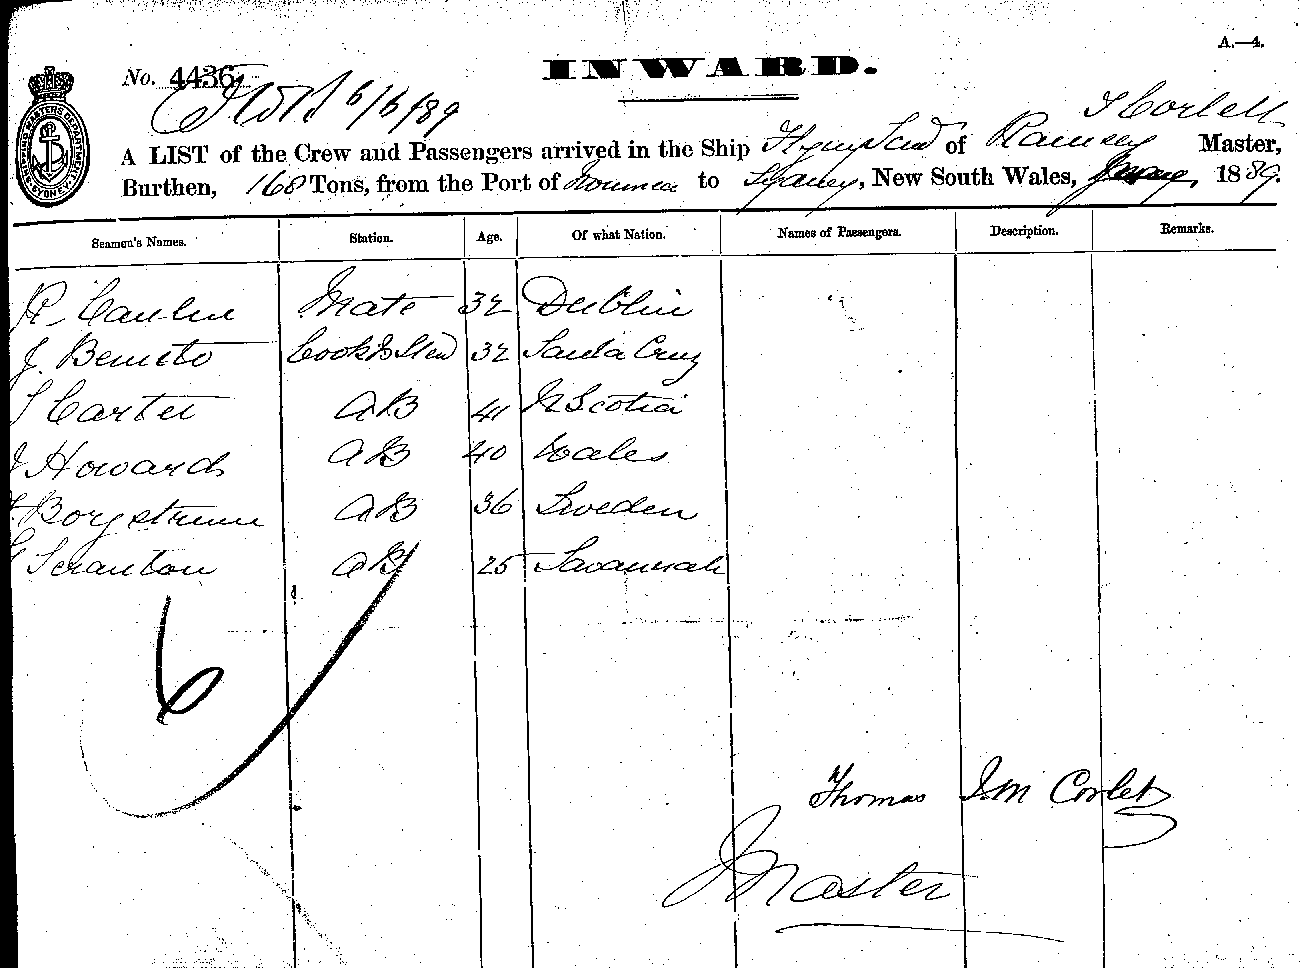 A.—4.
No. 4436
INWARD.
6/6/89
T Corlett
A LIST of the Crew and Passengers arrived in the Ship of Ramsey Master,
Burthen, 168 Tons, from the Port of Noumea to Sydney, New South Wales, 1889.
SHIPPING MASTERS DEPARTMENT SYDNEY
Seamen's Names. Station. Age. Of what Nation. Names of Passengers. Description. Remarks.
R. Mate 32 Dublin
J. Benito Cook & Stew 32 Santa Cruz
Carter AB 41 N Scotia
J Howard AB 40 Wales
Borgstrum AB 36 Sweden
Scranton AB 25 Savannah
6
Thomas Corlett
Master